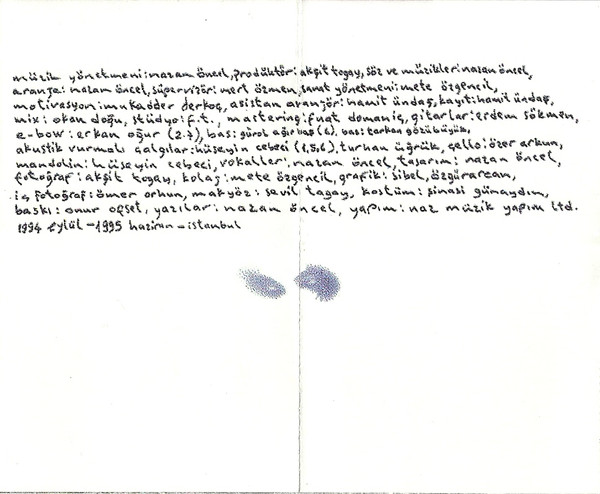 müzik yönetmeni: nazan öncel, prodüktör: akşit togay, söz ve müzikler: nazan öncel,
aranje: nazan öncel, süpervizör: mert özmen, sanat yönetmeni: mete özgencil,
motivasyon: mukadder derkoç, asistan aranjör: hamit ündaş, kayıt: hamit ündaş,
mix: okan doğu, stüdyo: f.t., mastering: fuat domaniç, gitarlar: erdem sökmen,
e-bow: erkan oğur (2.7), bas: gürol ağırbaş (6), bas: tarkan gözübüyük,
akustik vurmalı çalgılar: hüseyin cebeci (1,5,6), turhan üğrük, çello: özer arkun,
mandolin: hüseyin cebeci, vokaller: nazan öncel, tasarım: nazan öncel,
fotoğraf: akşit togay, kolaj: mete özgencil, grafik: sibel, özgürarcan,
iç fotoğraf: ömer orhun, makyöz: sevil togay, kostüm: şinasi günaydın,
baskı: onur ofset, yazılar: nazan öncel, yapım: naz müzik yapım ltd.
1994 eylül - 1995 haziran - istanbul